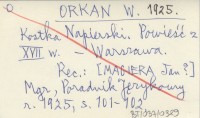 ORKAN W. 1925.
Kostka Napierski. Powieść z
XVII w. – Warszawa.
Rec.: [MAGIERA Jan?]
Mgr, Poradnik Językowy
r. 1925, s. 101-102